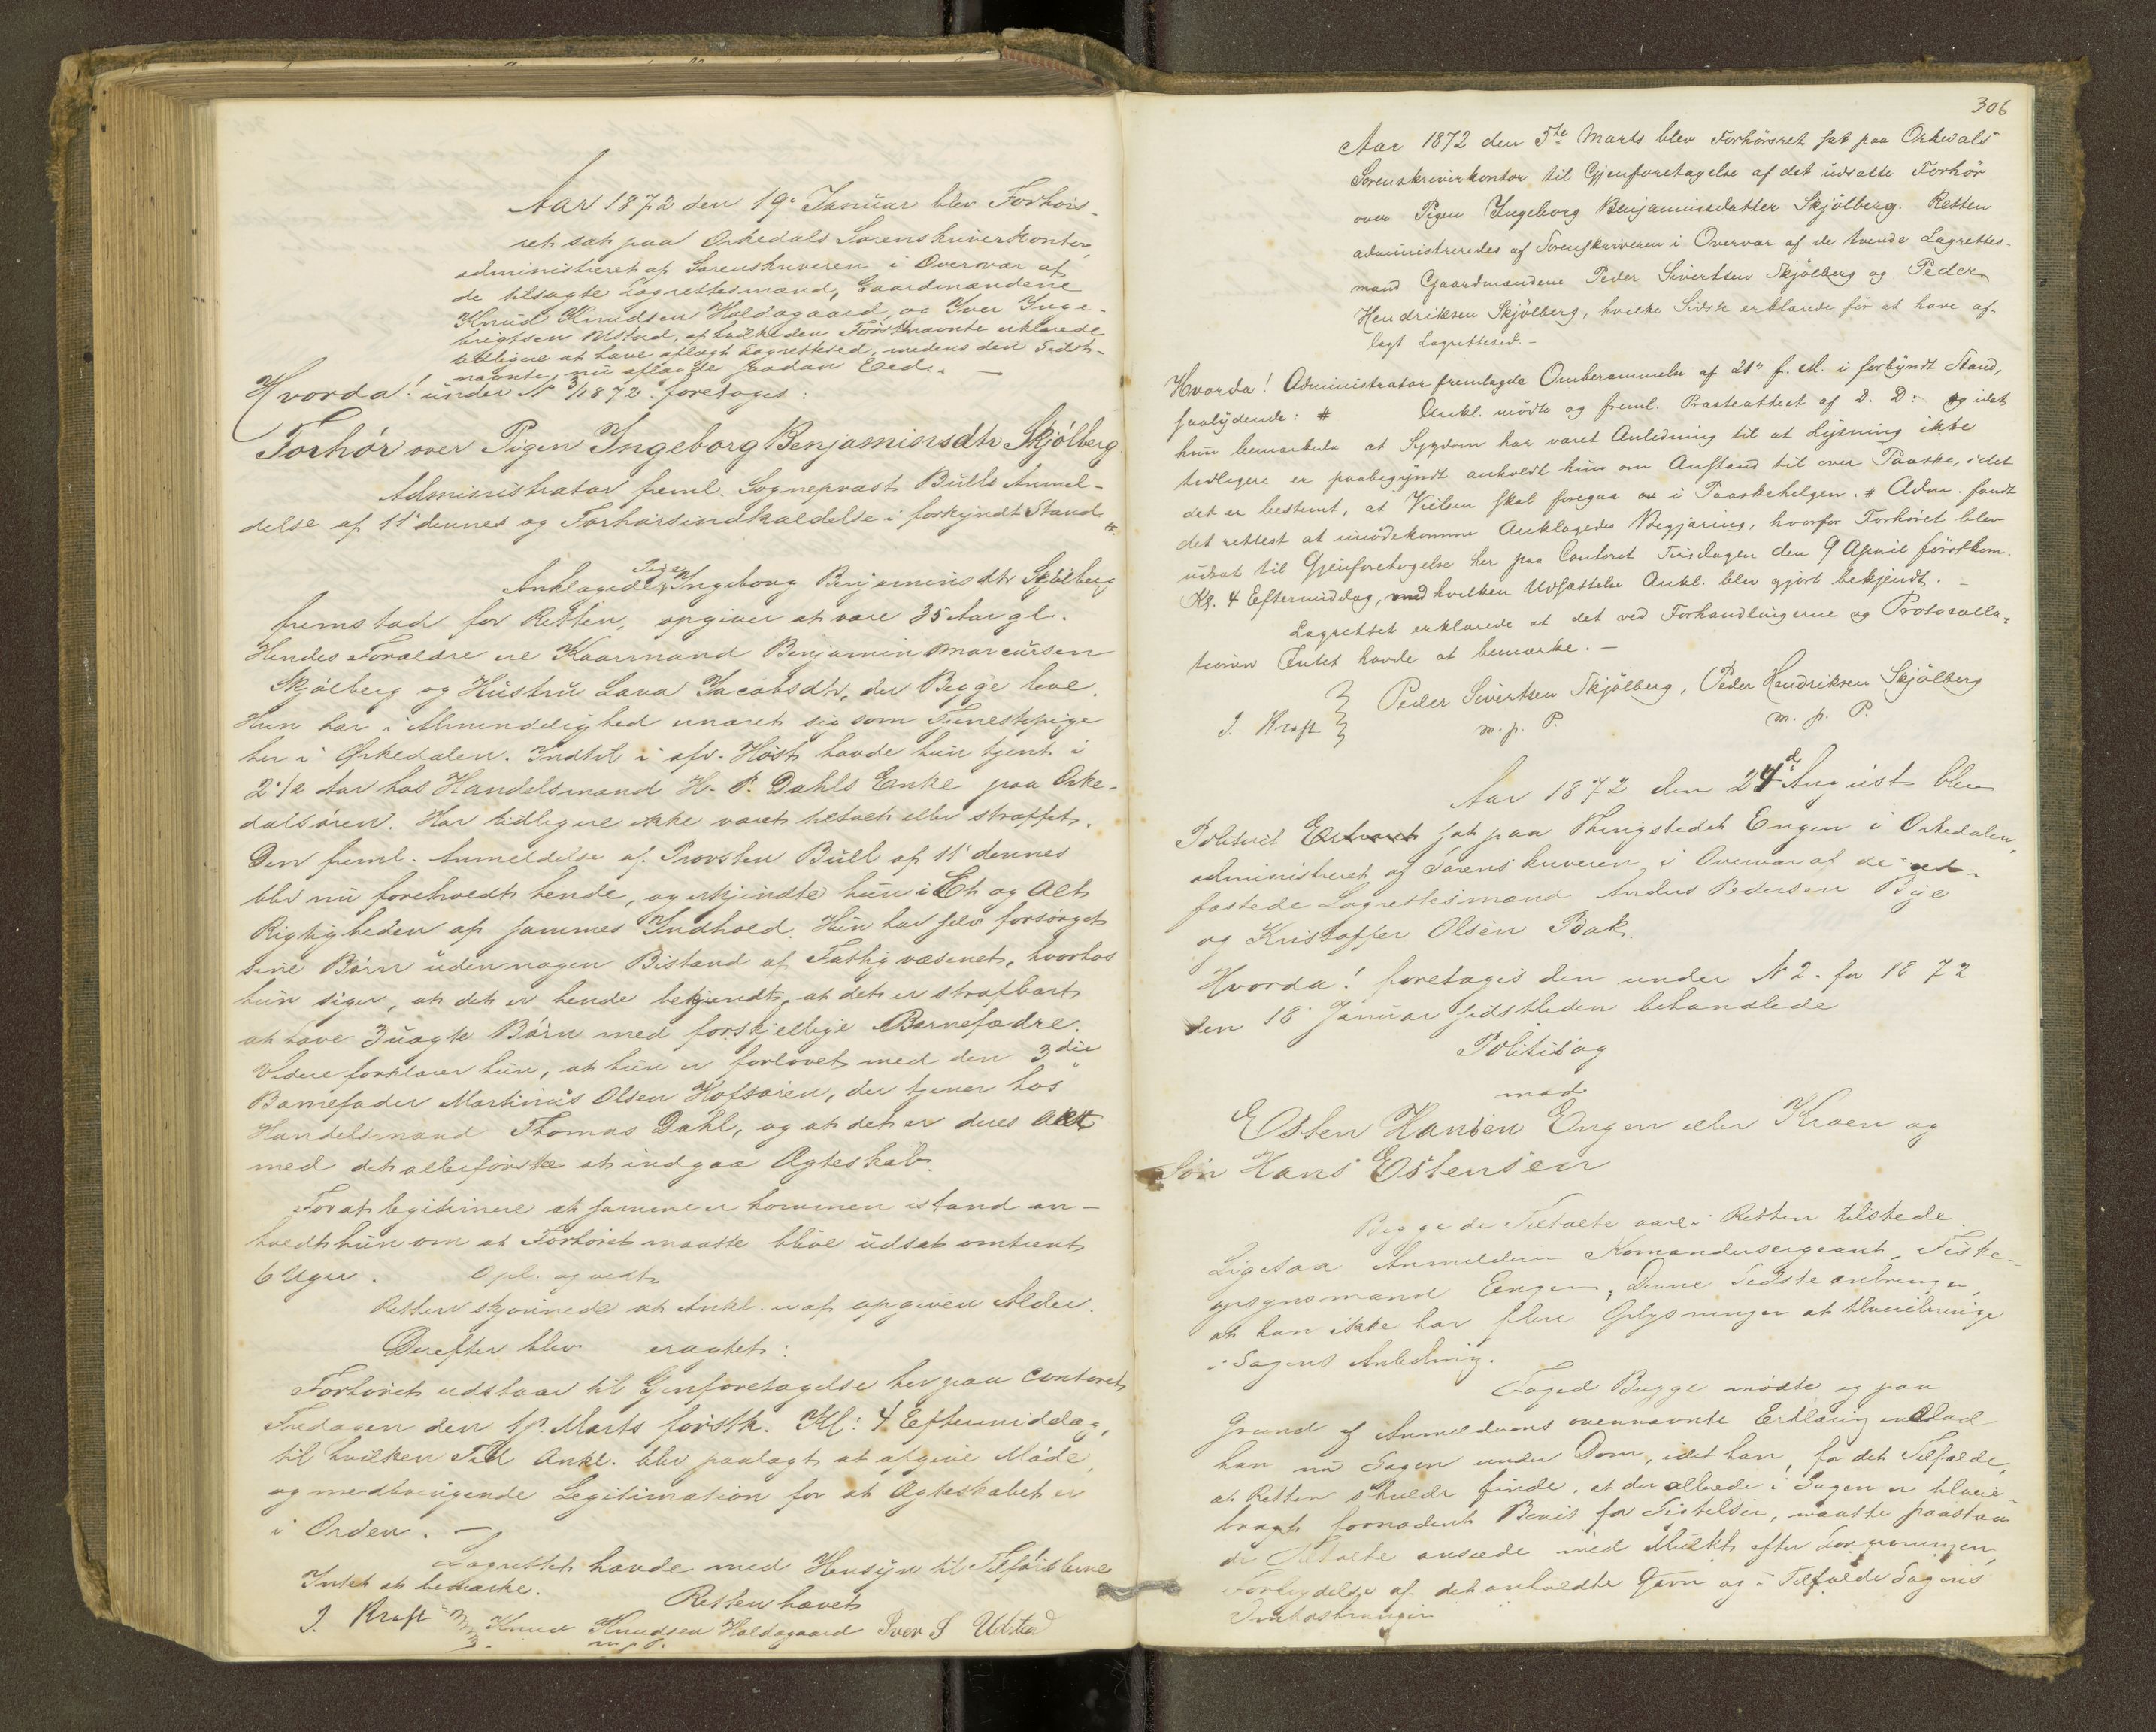 Aar 1872 den 19de Januar blev Forhörs-
ret sat paa Orkedals Sorenskriverkontor,
administreret af Sorenskriveren i Overvær af
de tilsagte Lagrettesmænd, Gaardmændene
Knud Knudsen Holdagaard, og Iver Inge-
brigtsen Ustad, af hvilke den Förstnævnte erklærede
tidligere at have aflagt Lagrettesed, medens den Sidst-
nævnte nu aflagde saadan Eed. —
Hvorda! under No 3/1872 foretoges:
Forhör over Pigen Ingeborg Benjaminsdtr Skjölberg
Administrator freml. Sogneprovst Bulls Anmel-
delse af 11' dennes og Forhörsindkaldelse i forkyndt Stand
Anklagede, Pigen Ingeborg Benjaminsdtr Skjölberg
fremstod for Retten, opgiver at være 35 Aar gl.
Hendes Forældre ere Kaarmand Benjamin Marcusen
Skjölberg og Hustru Lava Jacobsdtr, der Begge leve.
Hun har i Almindelighed ernæret sig som Tjenestepige
her i Orkedalen. Indtil i afv. Höst havde hun tjent i
2 1/2 Aar hos Handelsmand H. P. Dahls Enke paa Orke-
dalsören. Har tidligere ikke været tiltalt eller straffet.
Den freml. Anmeldelse af Provsten Bull af 11' dennes
blev nu foreholdt hende, og erkjendte hun i Et og Alt
Rigtigheden af sammes Indhold. Hun har selv forsörget
sine Börn uden nogen Bistand af Fattigvæsenet, hvorhos
hun siger, at det er hende bekjendt, at det er strafbart
at have 3 uægte Börn med forskjellige Barnefædre.
Videre forklarer hun, at hun er forlovet med den 3die
Barnefader Martinus Olsen Hofsören, der tjener hos
Handelsmand Thomas Dahl, og at det er deres Agt
med det allerförste at indgaa Ægteskab.
For at legitimere at samme er kommen istand an-
holdt hun om at Forhöret maatte blive udsat omtrent
6 Uger. Opl. og vedt.
Retten skjönnede at Ankl. er af opgiven Alder.
Derefter blev eragtet:
Forhöret udstaar til Gjenforetagelse her paa Contoret
Fredagen den 1ste Marts förstk. Kl: 4 Eftermiddag,
til hvilken Tid Ankl. blev paalagt at afgive Möde,
og medbringende Legitimation for at Ægteskabet er
i Orden. —
Lagrettet havde med Hensyn til Tilförslerne
Intet at bemærke. Retten hævet
J. Kraft Knud Knudsen Holdagaard Iver I Ustad
m. p. P.
306
Aar 1872 den 5te Marts blev Forhörsret sat paa Orkedals
Sorenskriverkontor til Gjenforetagelse af det udsatte Forhör
over Pigen Ingeborg Benjaminsdatter Skjölberg. Retten
administreredes af Sorenskriveren i Overvær af de tvende Lagrettes-
mænd Gaardmændene Peder Sivertsen Skjölberg og Peder
Hendriksen Skjölberg, hvilke Sidste erklærede för at have af-
lagt Lagrettesed. —
Hvorda! Administrator fremlagde Omberammelse af 21de f. M. i forkyndt Stand,
saalydende: # Ankl. mödte og freml. Præsteattest af D. D: og idet
hun bemærkede at Sygdom har været Anledning til at Lysning ikke
tidligere er paabegyndt anholdt hun om Anstand til over Paaske, idet
det er bestemt, at Vielsen skal foregaa i Paaskehelgen. # Adm. fandt
det rettest at imödekomme Anklagedes Begjæring, hvorfor Forhöret blev
udsat til Gjenforetagelse her paa Contoret Tirsdagen den 9 April förstkom.
Kl. 4 Eftermiddag, med hvilken Udsættelse Ankl. blev gjort bekjendt. —
Lagrettet erklærede at det ved Forhandlingerne og Protocolla-
tionen Intet havde at bemærke. —
J. Kraft Peder Sivertsen Skjölberg, Peder Hendriksen Skjölberg
m. p. P. m. p. P.
Aar 1872 den 24de August blev
Politiret sat paa Thingstedet Engen i Orkedalen,
administreret af Sorenskriveren i Overvær af de ed-
fæstede Lagrettesmænd Anders Pedersen Bye
og Kristoffer Olsen Bak.
Hvorda! foretoges den under No 2 for 1872
den 18 Januar sidstleden behandlede
Politisag
mod
Esten Hansen Engen eller Kroen og
Sön Hans Estensen
Begge de Tiltalte vare i Retten tilstede.
Ligesaa Anmelderen Komandersergeant, Fiske-
opsynsmand Engen, Denne Sidste anbringer,
at han ikke har flere Oplysninger at tilveiebringe
i Sagens Anledning.
Foged Bugge mödte og paa
Grund af Anmelderens ovennævnte Erklæring indlod
han nu Sagen under Dom, idet han, for det Tilfælde,
at Retten skulde finde, at der allerede i Sagen er tilveie-
bragt fornödent Bevis for Tistelsen, maatte paastaa
de Tiltalte ansede med Mulkt efter Lovgivningen,
Forbrydelse af det anholdte Garn og i Tilfælde Sagens
Omkostninger